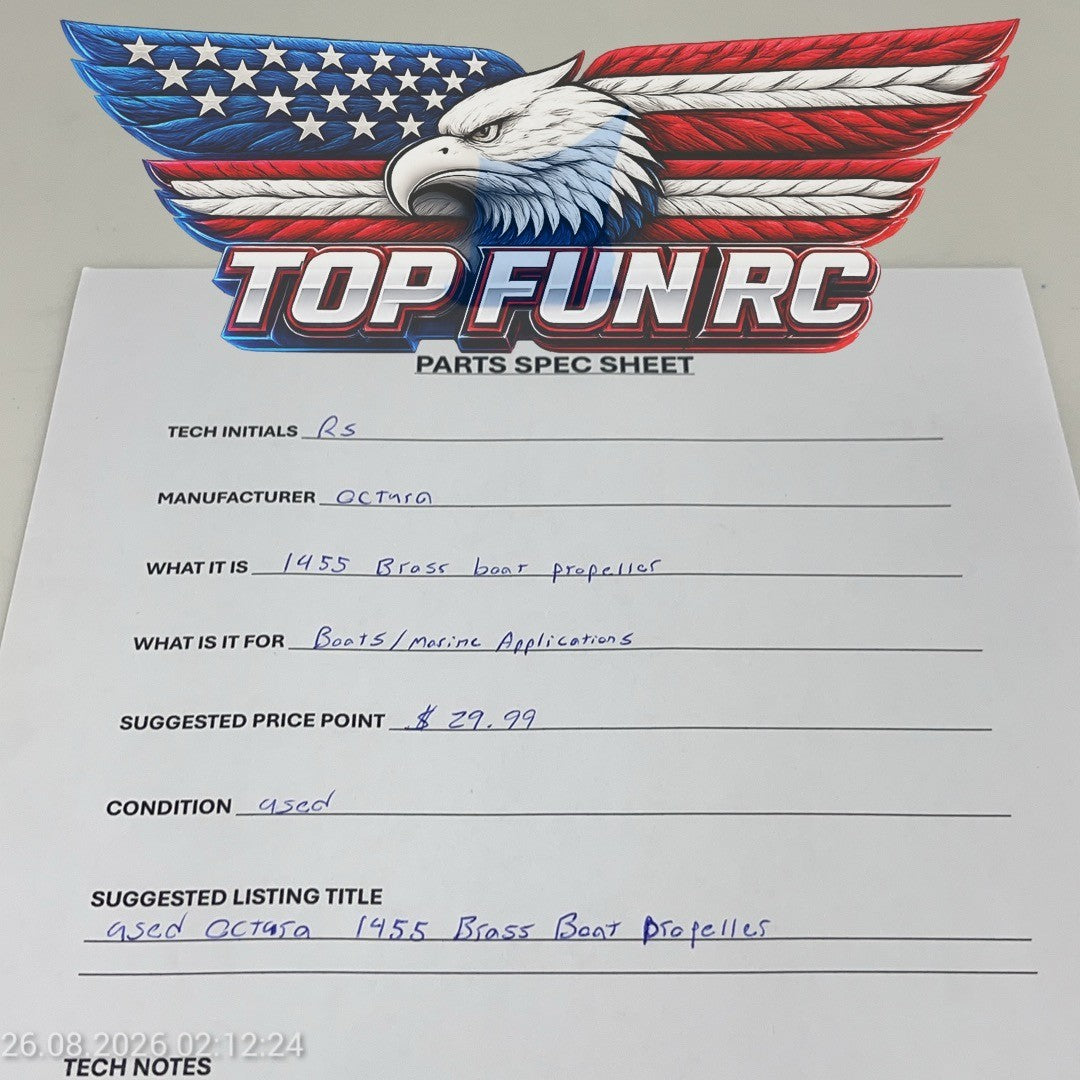 TOP FUN RC
PARTS SPEC SHEET
TECH INITIALS Rs
MANUFACTURER Octura
WHAT IT IS 1455 Brass boat propeller
WHAT IS IT FOR Boats/Marine Applications
SUGGESTED PRICE POINT $ 29.99
CONDITION used
SUGGESTED LISTING TITLE
used Octura 1455 Brass Boat propeller
26.08.2026 02:12:24
TECH NOTES